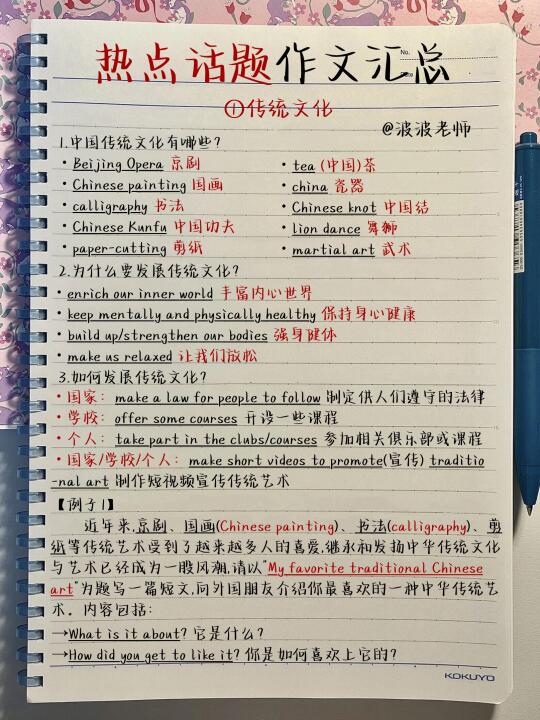 热点话题作文汇总
No.
①传统文化
@波波老师
1.中国传统文化有哪些?
• Beijing Opera 京剧
• tea (中国)茶
• Chinese painting 国画
• china 瓷器
• calligraphy 书法
• Chinese knot 中国结
• Chinese Kunfu 中国功夫
• lion dance 舞狮
• paper-cutting 剪纸
• martial art 武术
2.为什么要发展传统文化?
• enrich our inner world 丰富内心世界
• keep mentally and physically healthy 保持身心健康
• build up/strengthen our bodies 强身健体
• make us relaxed 让我们放松
3.如何发展传统文化?
• 国家: make a law for people to follow 制定供人们遵守的法律
• 学校: offer some courses 开设一些课程
• 个人: take part in the clubs/courses 参加相关俱乐部或课程
• 国家/学校/个人: make short videos to promote(宣传) traditio
-nal art 制作短视频宣传传统艺术
【例子1】
近年来,京剧、国画(Chinese painting)、书法(calligraphy)、剪
纸等传统艺术受到了越来越多人的喜爱,继承和发扬中华传统文化
与艺术已经成为一股风潮,请以"My favorite traditional Chinese
art"为题写一篇短文,向外国朋友介绍你最喜欢的一种中华传统艺
术。内容包括:
→What is it about? 它是什么?
→How did you get to like it? 你是如何喜欢上它的?
KOKUYO